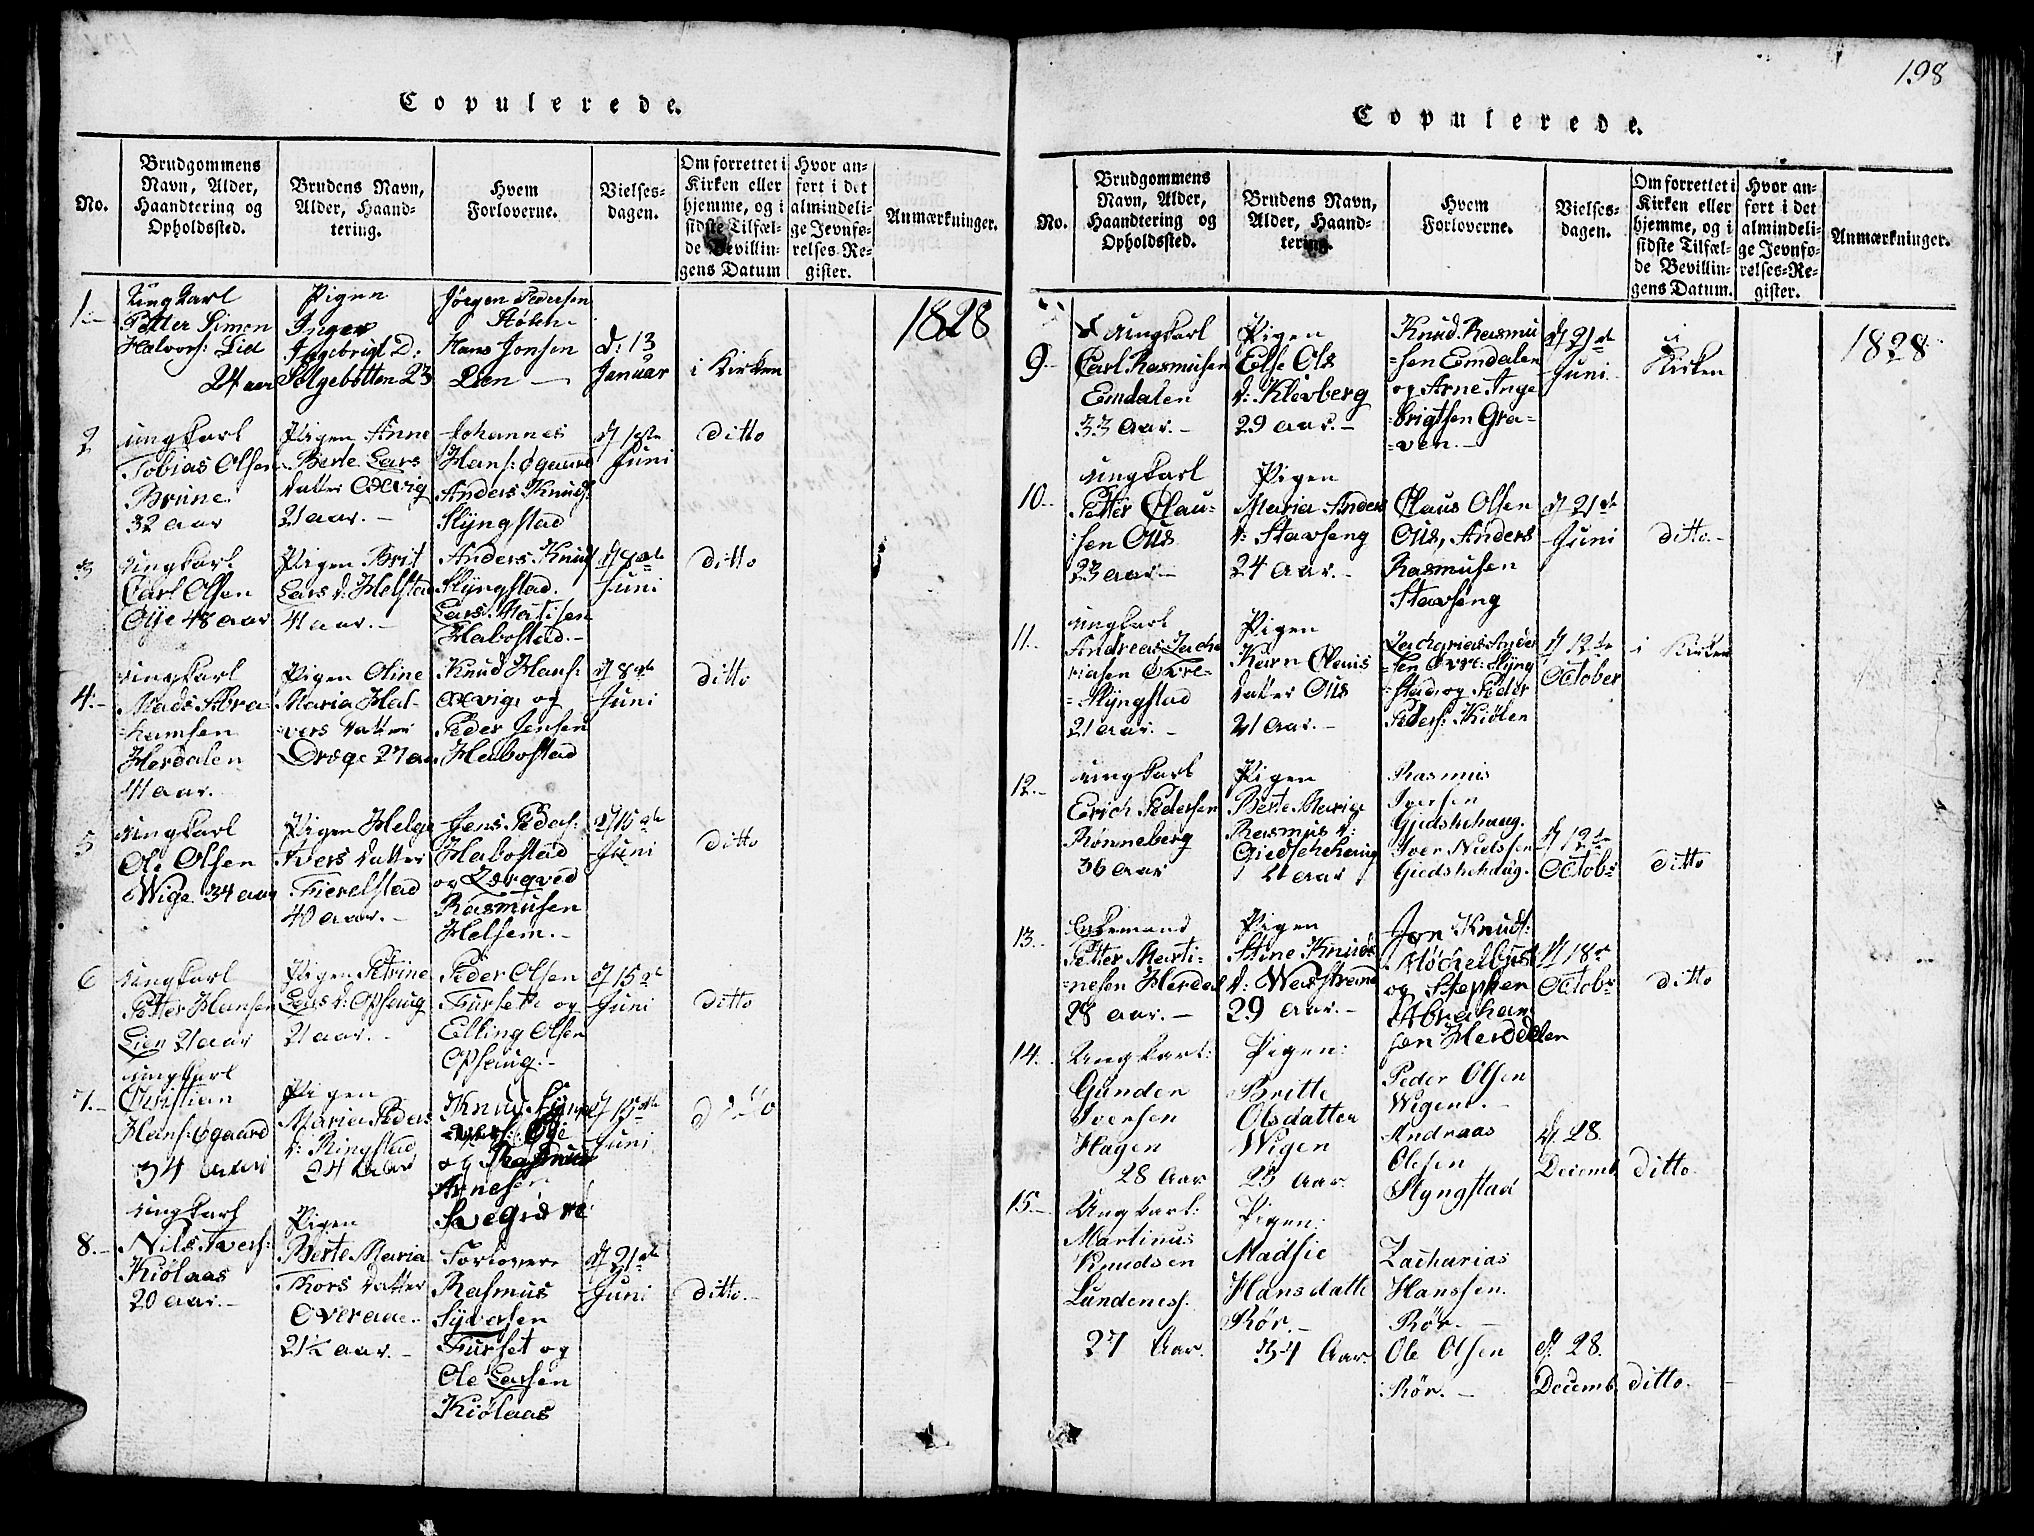 198
Copulerede.
No.
Brudgommens
Navn, Alder,
Haandtering og
Opholdssted.
Brudens Navn,
Alder, Haand-
tering.
Hvem
Forloverne.
Vielses-
dagen.
Om forrettet i
Kirken eller
hjemme, og i
sidste Tilfæl-
de Bevillin-
gens Datum
Hvor an-
ført i det
almindeli-
ge Jevnfø-
relses-Re-
gister.
Anmærkninger.
1828
1.
Ungkarl
Petter Simon
Halvors: Lid
24 aar
Pigen
Inger
Ingebrigt D:
Selgebotten 23
Jørgen Pedersen
Hans Jonsen
Lien
d: 13
Januar
i Kirken
2
ungkarl
Tobias Olsen
Brune
32 aar
Pigen Anne
Berte Lars
datter
21 aar.
Johannes
Hans: Øgaard
Anders Knuds
Slyngstad
Juni
ditto
3
ungkarl
Carl Olsen
Øije 48 aar
Pigen Brit
Lars d: Helstad
41 aar.
Anders Knuds
Slyngstad.
Lars Matisen
Habostad.
d 8de
Juni
ditto
4.
ungkarl
Mads Abra-
hamsen
Herdalen
41 aar.
Pigen Oline
Maria Hal-
vers datter
Dræge 27 aar
Knud Hans:
og
Peder Jensen
Habostad
d 8de
Juni
ditto
5
ungkarl
Ole Olsen
Wige 34 aar
Pigen Helge
Ivers datter
Fierelstad
40 aar.
Jens Peders:
Habostad
og
Rasmusen
Helsem.
d 15de
Juni
ditto
6
ungkarl
Petter Hansen
Lien 21 aar
Pigen Petrine
Lars d: Opshaug
21 aar.
Peder Olsen
Furset og
Elling Olsen
Opshaug.
d 15de
Juni
ditto
7.
ungkarl
Christian
Hans: Øgaard
34 aar
Pigen
Maria Peders
d: Ringstad
24 aar
Knud
og Rasmus
Arnesen
d 15de
Juni
ditto
8.
ungkarl
Nils Ivers:
Kiølaas
20 aar.
Pigen
Berte Maria
Thors datter
Overaae
21½ aar.
Forlovere
Rasmus
Syversen
Furset og
Ole Larsen
Kiølaas
d 21de
Juni
ditto.
Copulerede.
No.
Brudgommens
Navn, Alder,
Haandtering og
Opholdssted.
Brudens Navn,
Alder, Haand-
tering.
Hvem
Forloverne.
Vielses-
dagen.
Om forrettet i
Kirken eller
hjemme, og i
sidste Tilfæl-
de Bevillin-
gens Datum.
Hvor an-
ført i det
almindeli-
ge Jevnfø-
relses-Re-
gister.
Anmærkninger.
1828
9
ungkarl
Carl Rasmusen
Emdalen
33 aar.
Pigen
Else Ols
d: Klevberg
29 aar.
Knud Rasmu
=sen Emdalen
og Arne Inge
=brigtsen Gra-
=ven.
d 21de
Juni
i
Kirken
10
ungkarl
Petter Clau-
=sen Ous
23 aar.
Pigen
Maria Anders
d: Stavseng
24 aar.
Claus Olsen
Ous, Anders
Rasmusen
Stavseng
d 21de
Juni
ditto.
11.
ungkarl
Andreas Zacha
riasen Øvre-
=Slyngstad
21 aar.
Pigen
Karn Claus
datter Ous
21 aar.
Zacharias Anders
=sen Øvre: Slyng
=stad og Peder
Peders: Kiølen
d 12te
October
i Kirken
12.
ungkarl
Erich Pedersen
Rønneberg
36 aar
Pigen
Berte Marie
Rasmus d:
Giedschehaug
21 aar
Rasmus
Iversen
Giedshehaug.
Iver Nielssen
Giedshehaug.
d 12te
Octobr
ditto
13.
Enkemand
Petter Marti-
=nesen Herdal
28 aar.
Pigen
Stine Knuds
d: Westrene
29 aar.
Jon Knuds:
og Stephen
Abraham
sen Herdalen
d 18de
Octobr
ditto
14.
Ungkarl:
Gunder
Iversen
Hagen
28 Aar
Pigen:
Britte
Olsdatter
Wigen
25 Aar.
Peder Olsen
Wigen.
Andreas
Olesen
Slyngstad
d. 28.
Decemb.
ditto.
15.
Ungkarl:
Martinus
Knudsen
Lundenes.
27 Aar.
Pigen:
Madsie
Hansdatte
Rør.
34 Aar.
Zacharias
Hanssen.
Rør.
Ole Olsen
Rør.
d. 28.
Decemb.
ditto.
1828